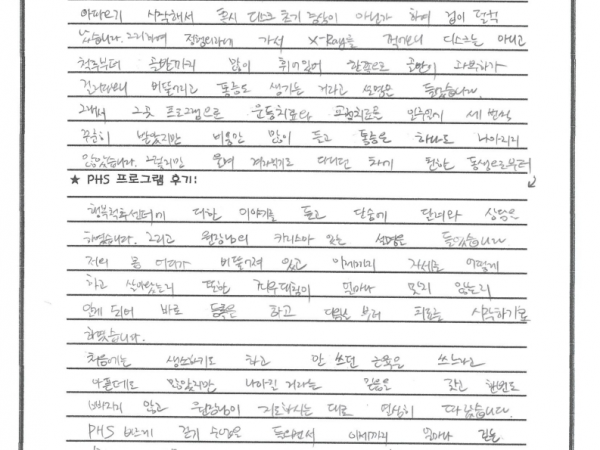 아파오기 시작해서 혹시 디스크 초기 증상이 아닌가 하여 겁이 덜컥
났습니다. 그리하여 정형외과에 가서 X-Ray를 찍어보니 디스크는 아니고
척추부터 골반까지 많이 휘어있어 한쪽으로 골반이
걸리다보니 비뚤어지고 통증도 생기는 거라고 설명을 들었습니다.
그래서 그곳 프로그램으로 운동치료와 도침치료를 일주일에 세 번씩
꾸준히 받았지만 비용만 많이 들고 통증은 하나도 나아지지
않았습니다. 그렇지만 울며 겨자먹기로 다니던 차에 친한 동생으로부터
★ PHS 프로그램 후기:
척추센터에 대한 이야기를 듣고 단숨에 달려와 상담을
하였습니다. 그리고 원장님의 카리스마 있는 설명을 들었습니다
저의 몸 어디가 비뚤어져 있고 이제까지 자세를 어떻게
하고 살아왔는지 또한 좌우대칭이 얼마나 맞지 않는지
알게 되어 바로 등록을 하고 다음날 부터 치료를 시작하기로
하였습니다.
처음에는 생소하기도 하고 안 쓰던 근육을 쓰느라고
아플때도 많았지만 나아질 거라는 믿음을 갖고 한번도
빠지지 않고 원장님이 지도하시는 대로 열심히 따라갔습니다.
PHS 바르게 걷기 수업을 들으면서 이제까지 얼마나